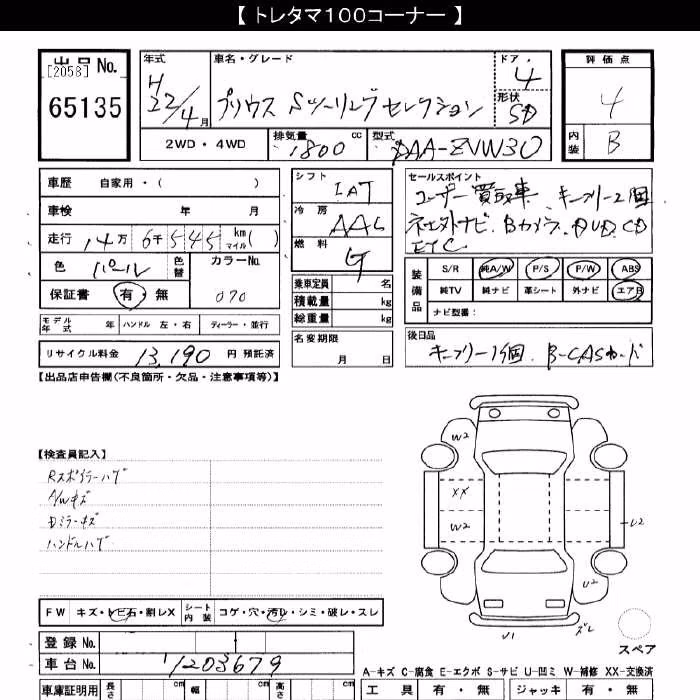 【 トレタマ１００コーナー 】
出品 No.
[2058]
65135
年式
H22/4 月
車名・グレード
プリウス Sツーリングセレクション
ドア
4
形状
SD
評価点
4
内装
B
2WD・4WD
排気量
1800 cc
型式
DAA-ZVW30
車歴 自家用・( )
車検 年 月
走行 14万 6千 545 km マイル ( )
色 パール 色替 カラーNo. 070
保証書 有・無
シフト IAT
冷房 AAC
燃料 G
乗車定員 名
積載量 kg
総重量 kg
セールスポイント
ユーザー買取車、キーフリー2個
ネエ外ナビ、Bカメラ、DVD、CD
ETC
装備品
S/R 純A/W P/S P/W ABS
純TV 純ナビ 革シート 外ナビ エアB
ナビ型番:
モデル年式 年 ハンドル 左・右 ディーラー・並行
名変期限
月 日
後日品
キーフリー1個、B-CASカード
リサイクル料金 13,190 円 預託済
【出品店申告欄(不良箇所・欠品・注意事項等)】
【検査員記入】
Rスポイラーハゲ
A/Wキズ
Dミラーキズ
ハンドルハゲ
W2
XX
W2
U2
U2
U1
ズレ
スペア
FW キズ・トビ石・割レX
シート内装 コゲ・穴・汚レ・シミ・破レ・スレ
登録 No.
車台 No. 1203679
A-キズ C-腐食 E-エクボ S-サビ U-凹ミ W-補修 XX-交換済
車庫証明用 長さ cm 幅 cm 高さ cm
工具 有・無 ジャッキ 有・無